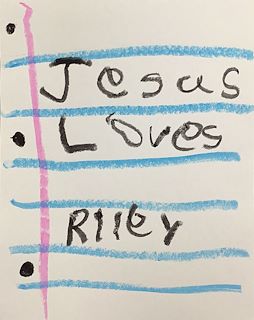 Jesus
Loves
Rlley